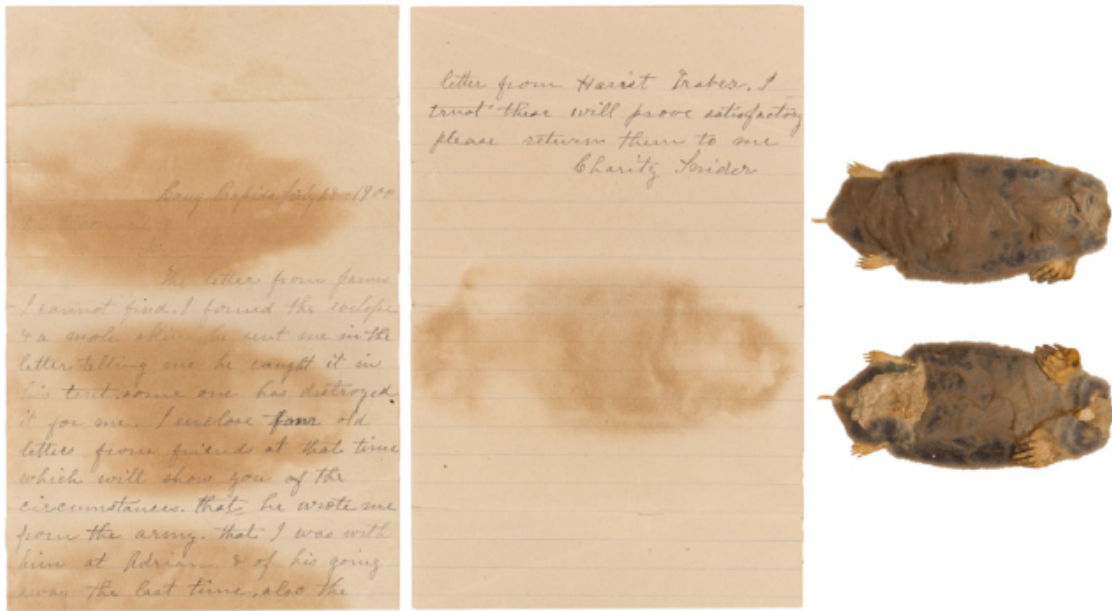 Rapids July 28 1900
The letter from James
I cannot find. I found the envlope
& a mole skin he sent me in the
letter telling me he caught it in
his tent. some one has distroyed
it for me. I enclose four old
letters from friends at that time
which will show you of the
circumstances. that he wrote me
from the army. that I was with
him at Adrian. & of his going
away the last time, also the
letter from Harist Traber. I
trust these will prove satisfactory
please return them to me
Charity Snider